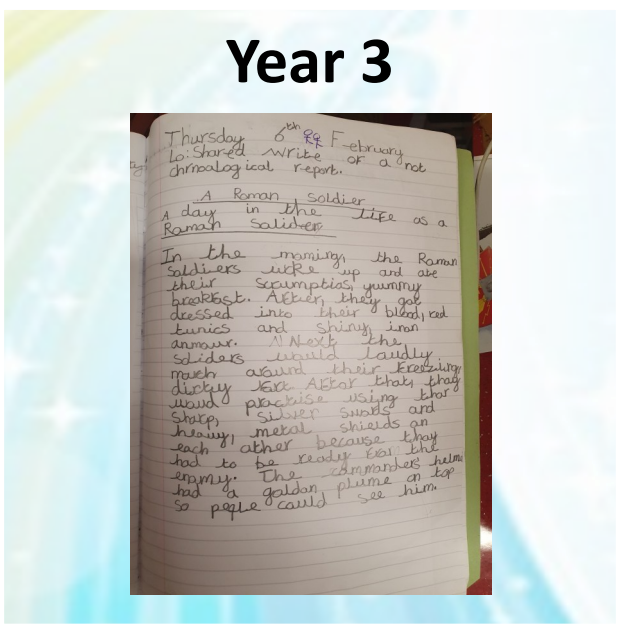 Year 3
Thursday 6th February
Lo: Shared write of a not
chrnoalogical report.
A Roman Soldier
A day in the life as a
Roman Salider
In the maming, the Roman
Saldiers woke up and ate
their scrumptias, yummy
breakfast. After, they got
dressed into their blood, red
tunics and shiny, iron
anmaur. Next the
soliders would laudly
march around their freezing,
dirty fort. After that, thay
waud practise using thar
sharp, silver swads and
heavy, metal shields an
each ather because thay
had to be ready for the
enamy. The commanders helm
had a goldan plume on top
so peqle cauld see him.